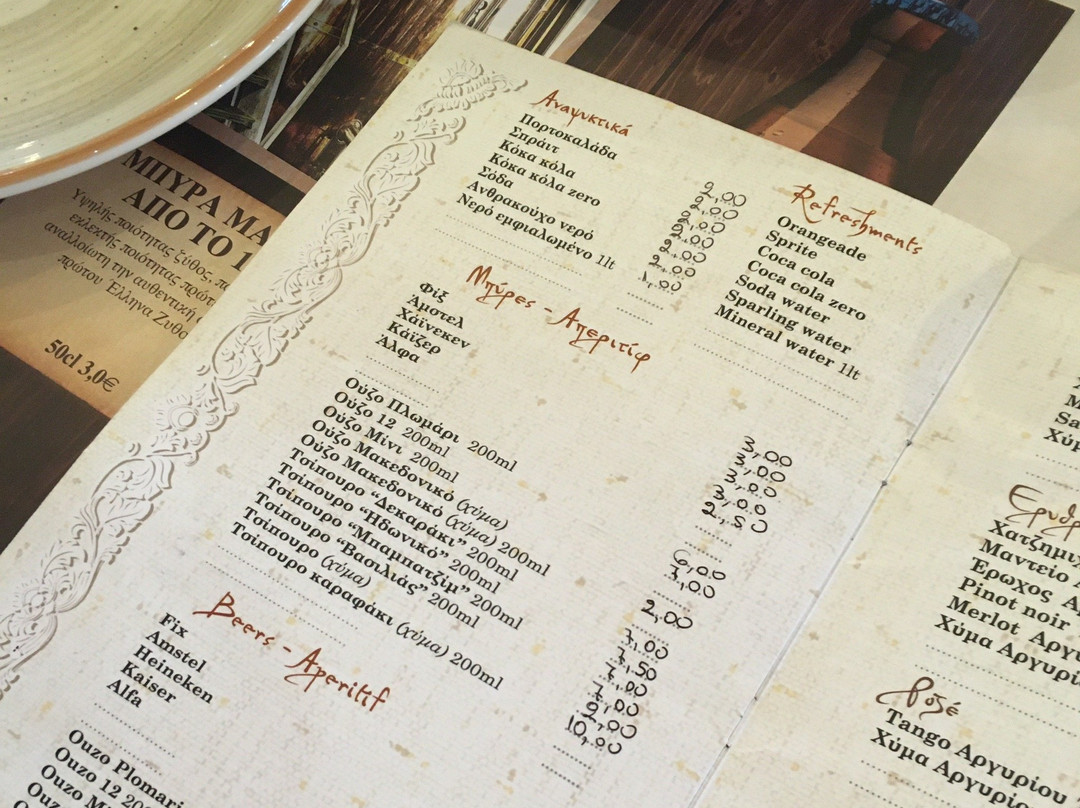 ΜΠΥΡΑ ΜΑ
ΑΠΟ ΤΟ 1
Υψηλής ποιότητας ζύθος, πα
εκλεκτής ποιότητας πρώτ
αναλλοίωτη την αυθεντική
πρώτου Έλληνα Ζυθο
50cl 3,0€
Αναψυκτικά
Πορτοκαλάδα
Σπράιτ 2,00
Κόκα κόλα 2,00
Κόκα κόλα zero 2,00
Σόδα 2,00
Ανθρακούχο νερό 2,00
Νερό εμφιαλωμένο 1lt 1,00
Μπύρες - Απεριτίφ
Φιξ
Άμστελ 3,00
Χάϊνεκεν 3,00
Κάϊζερ 3,00
Άλφα 2,50
Ούζο Πλωμάρι 200ml
Ούζο 12 200ml 7,00
Ούζο Μίνι 200ml
Ούζο Μακεδονικό (χύμα) 2,00
Ούζο Μακεδονικό (χύμα) 200ml
Τσίπουρο “Δεκαράκι” 200ml
Τσίπουρο “Ηδωνικό” 200ml
Τσίπουρο “Μπαμπατζίμ” 200ml
Τσίπουρο “Βασιλιάς” 200ml 7,00
Τσίπουρο (χύμα) 2,00
Τσίπουρο καραφάκι (χύμα) 200ml 10,00
Beers - Aperitif
Fix
Amstel
Heineken
Kaiser
Alfa
Ouzo Plomari
Ouzo 12 200
Ouzo
Refreshments
Orangeade
Sprite
Coca cola
Coca cola zero
Soda water
Sparling water
Mineral water 1lt
Χύμ
Ερυθρ
Χατζημιχ
Μαντείο
Έρωχος
Pinot noir
Merlot Αργυ
Χύμα Αργυρί
Ροζέ
Tango Αργυρίου
Χύμα Αργυρί